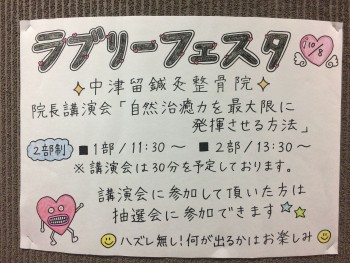 ラブリーフェスタ
10/8
中津留鍼灸整骨院
院長講演会「自然治癒力を最大限に
発揮させる方法」
2部制
■1部/11:30〜 ■2部/13:30〜
※講演会は30分を予定しております。
講演会に参加して頂いた方は
抽選会に参加できます
ハズレ無し!何が出るかはお楽しみ